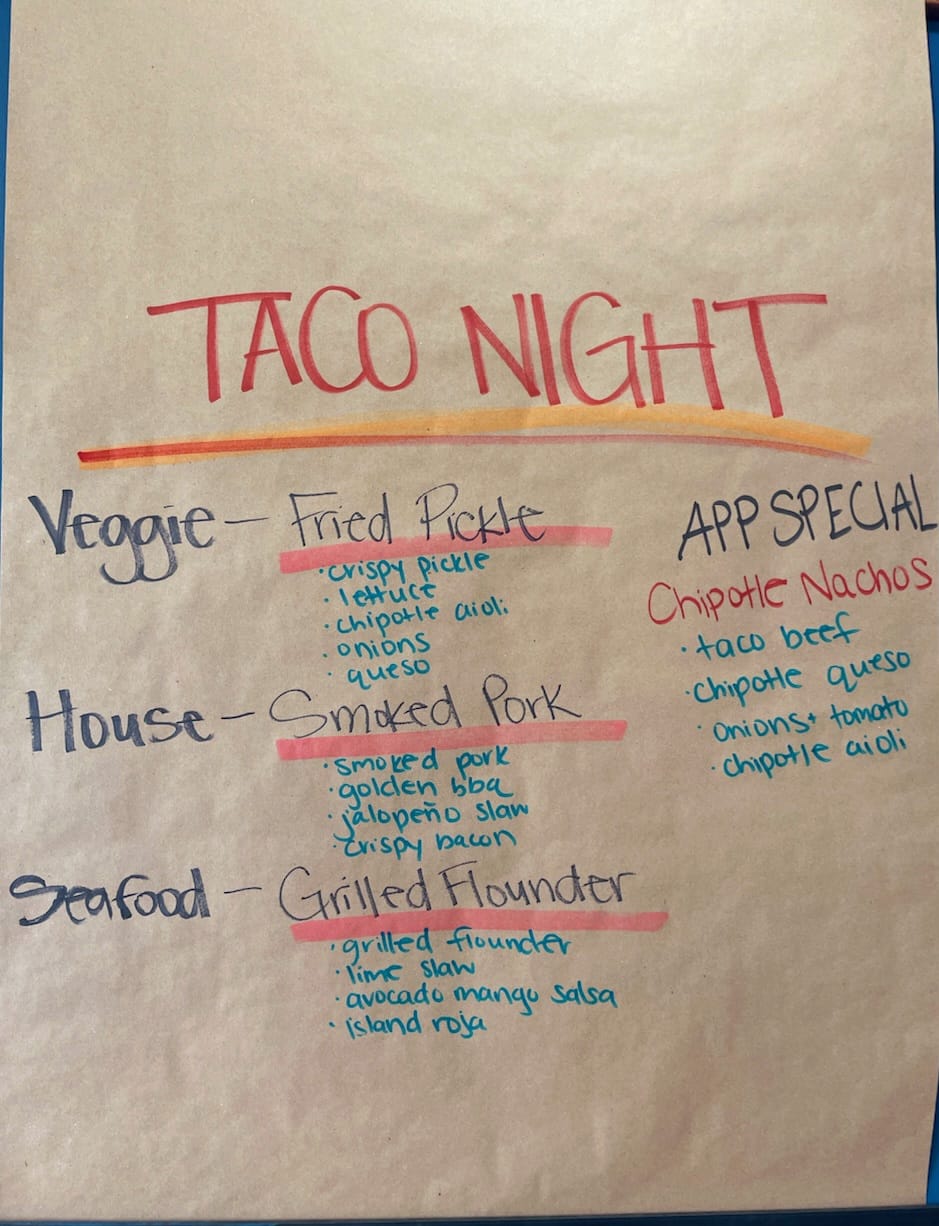 TACO NIGHT
Veggie - Fried Pickle
· crispy pickle
· lettuce
· chipotle aioli
· onions
· queso
House - Smoked Pork
· smoked pork
· golden bbq
· jalopeño slaw
· crispy bacon
Seafood - Grilled Flounder
· grilled flounder
· lime slaw
· avocado mango salsa
· island roja
APP SPECIAL
Chipotle Nachos
· taco beef
· chipotle queso
· onions + tomato
· chipotle aioli